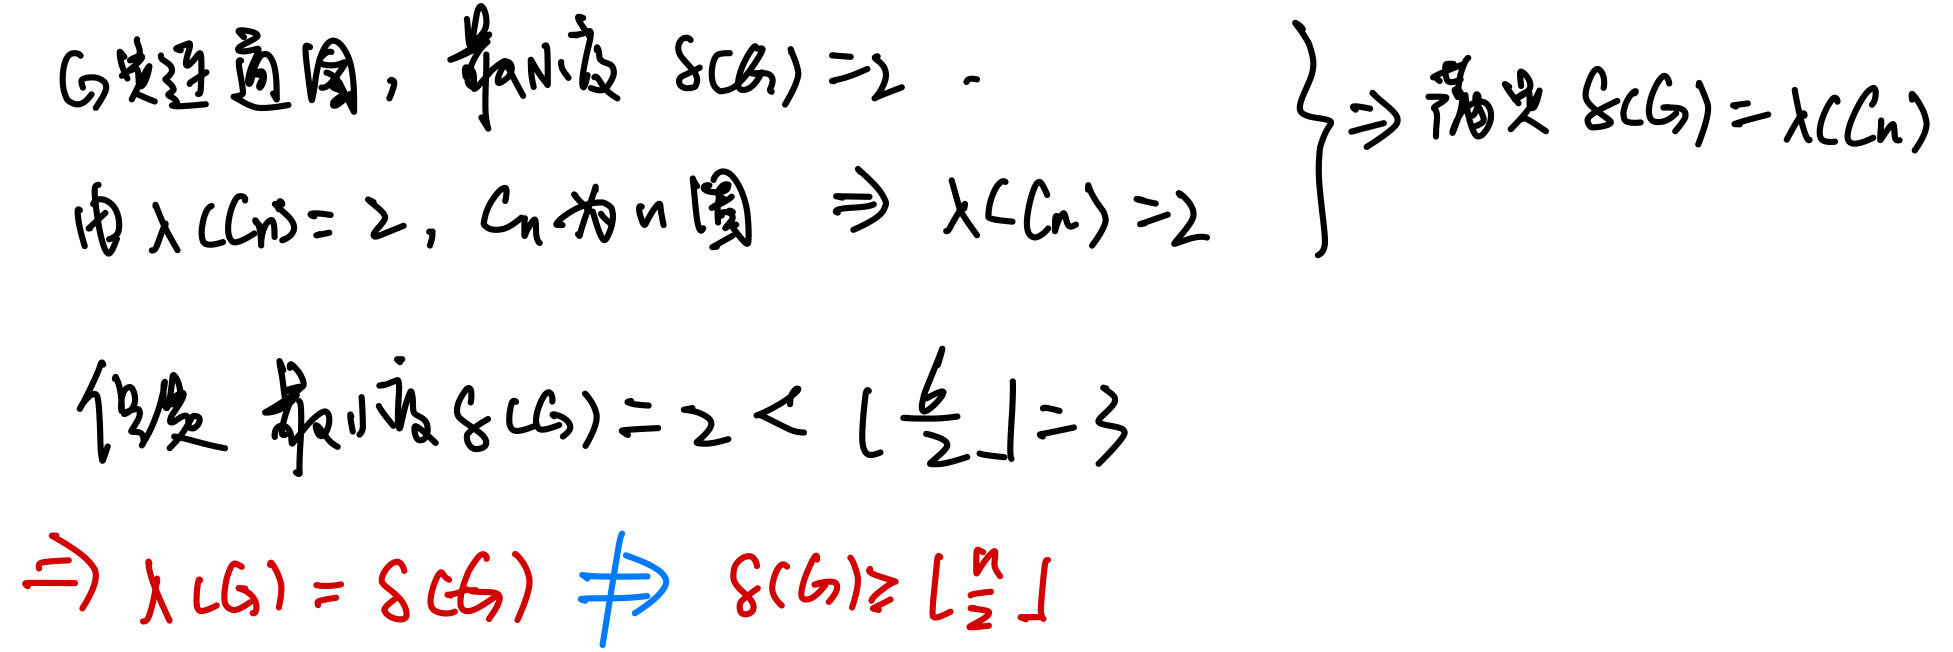 G是连通图，最小度 δ(G)=2 .
由 λ(Cn)=2，Cn为n圈 ⇒ λ(Cn)=2
⇒ 满足 δ(G)=λ(Cn)
但是 最小度 δ(G)=2 < ⌊6/2⌋=3
⇒ λ(G) = δ(G) ⇏ δ(G)≥⌊n/2⌋